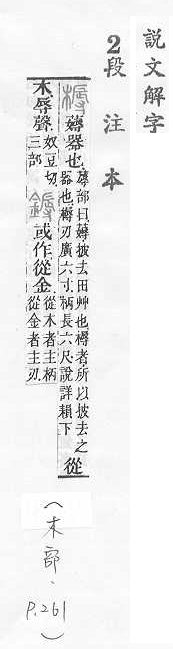 說文解字
2段注本
槈 薅器也
蓐部曰薅披去田艸也槈者所以披去之
器也槈刃廣六寸柄長六尺說詳下
從
木辱聲
奴豆切
三部
鎒 或作從金
從木者主柄
從金者主刃
(木部、P.261)